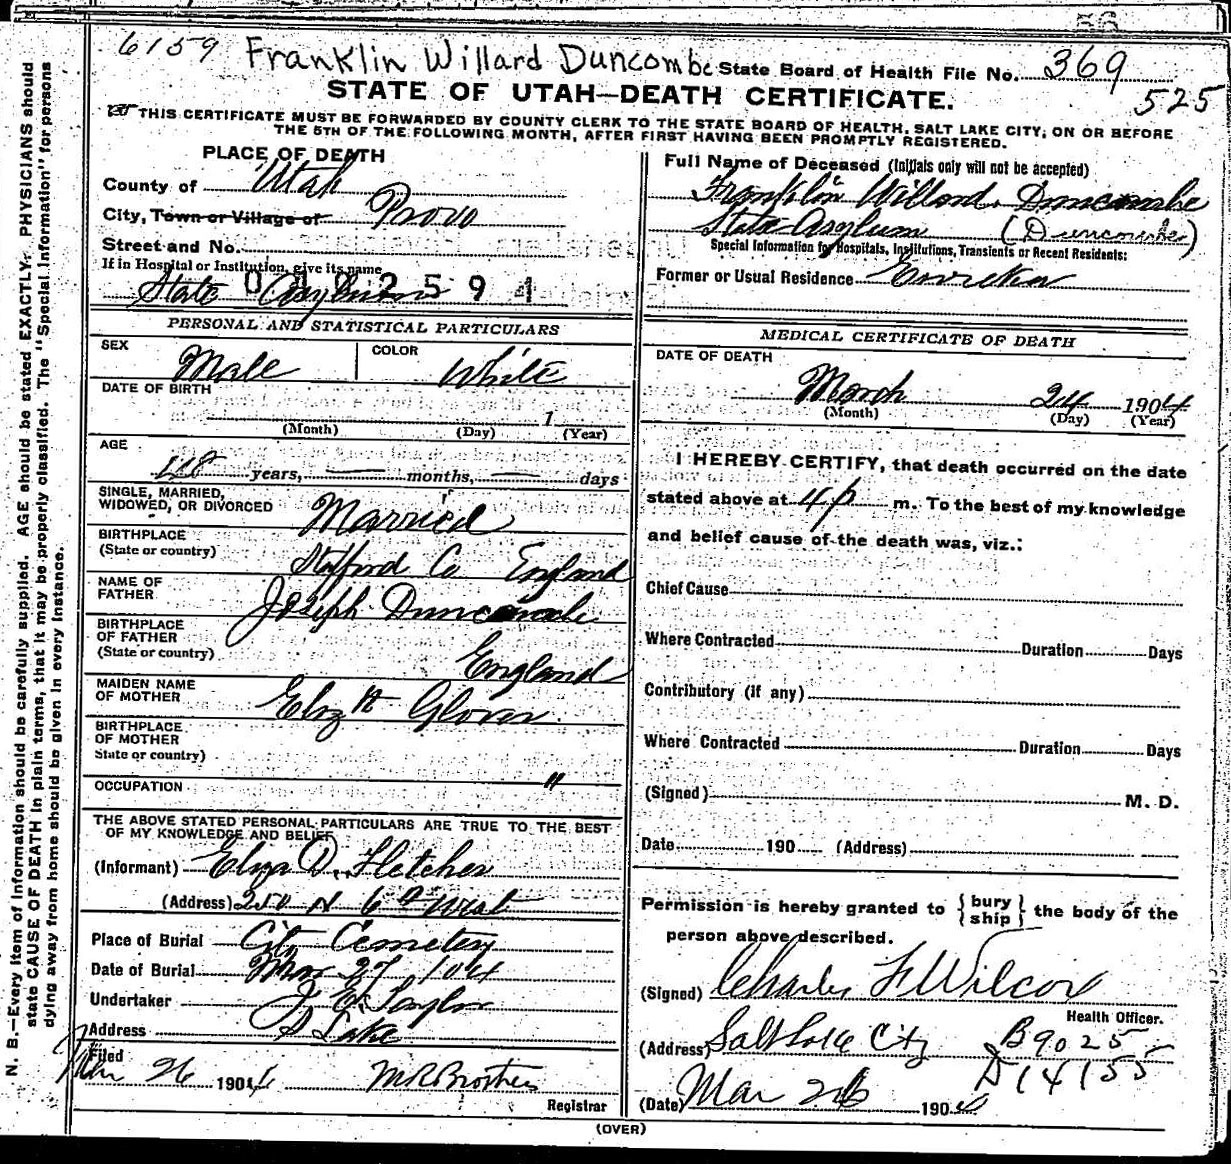 6159 Franklin Willard Duncombe State Board of Health File No. 369
525
STATE OF UTAH—DEATH CERTIFICATE.
THIS CERTIFICATE MUST BE FORWARDED BY COUNTY CLERK TO THE STATE BOARD OF HEALTH, SALT LAKE CITY, ON OR BEFORE
THE 5TH OF THE FOLLOWING MONTH, AFTER FIRST HAVING BEEN PROMPTLY REGISTERED.
PLACE OF DEATH
County of Utah
City, Town or Village of Provo
Street and No.
If in Hospital or Institution, give its name
State Asylum
Full Name of Deceased (Initials only will not be accepted)
Franklin Willard Duncombe
State Asylum (Duncombe)
Special Information for Hospitals, Institutions, Transients or Recent Residents:
Former or Usual Residence Eureka
PERSONAL AND STATISTICAL PARTICULARS
SEX Male COLOR White
DATE OF BIRTH
1
(Month) (Day) (Year)
AGE
48 years, months, days
SINGLE, MARRIED,
WIDOWED, OR DIVORCED Married
BIRTHPLACE
(State or country) Stafford Co England
NAME OF
FATHER Joseph Duncombe
BIRTHPLACE
OF FATHER
(State or country) England
MAIDEN NAME
OF MOTHER Elizth Glover
BIRTHPLACE
OF MOTHER
State or country)
OCCUPATION "
THE ABOVE STATED PERSONAL PARTICULARS ARE TRUE TO THE BEST
OF MY KNOWLEDGE AND BELIEF
(Informant) Eliza D. Fletcher
(Address) 250 N 6th West
Place of Burial City Cemetery
Date of Burial Mar 27, 104
Undertaker J. E. Taylor
Address S Lake
Filed
Mar 26 1904 M R Brothers
Registrar
MEDICAL CERTIFICATE OF DEATH
DATE OF DEATH
March 24 1904
(Month) (Day) (Year)
I HEREBY CERTIFY, that death occurred on the date
stated above at 4 p m. To the best of my knowledge
and belief cause of the death was, viz.:
Chief Cause
Where Contracted Duration Days
Contributory (if any)
Where Contracted Duration Days
(Signed) M. D.
Date 190 (Address)
Permission is hereby granted to {bury ship} the body of the
person above described.
(Signed) Charles F Wilcox
Health Officer.
(Address) Salt Lake City B9025
D14155
(Date) Mar 26 1904
(OVER)
N. B.—Every item of information should be carefully supplied. AGE should be stated EXACTLY. PHYSICIANS should
state CAUSE OF DEATH in plain terms, that it may be properly classified. The "Special Information" for persons
dying away from home should be given in every instance.